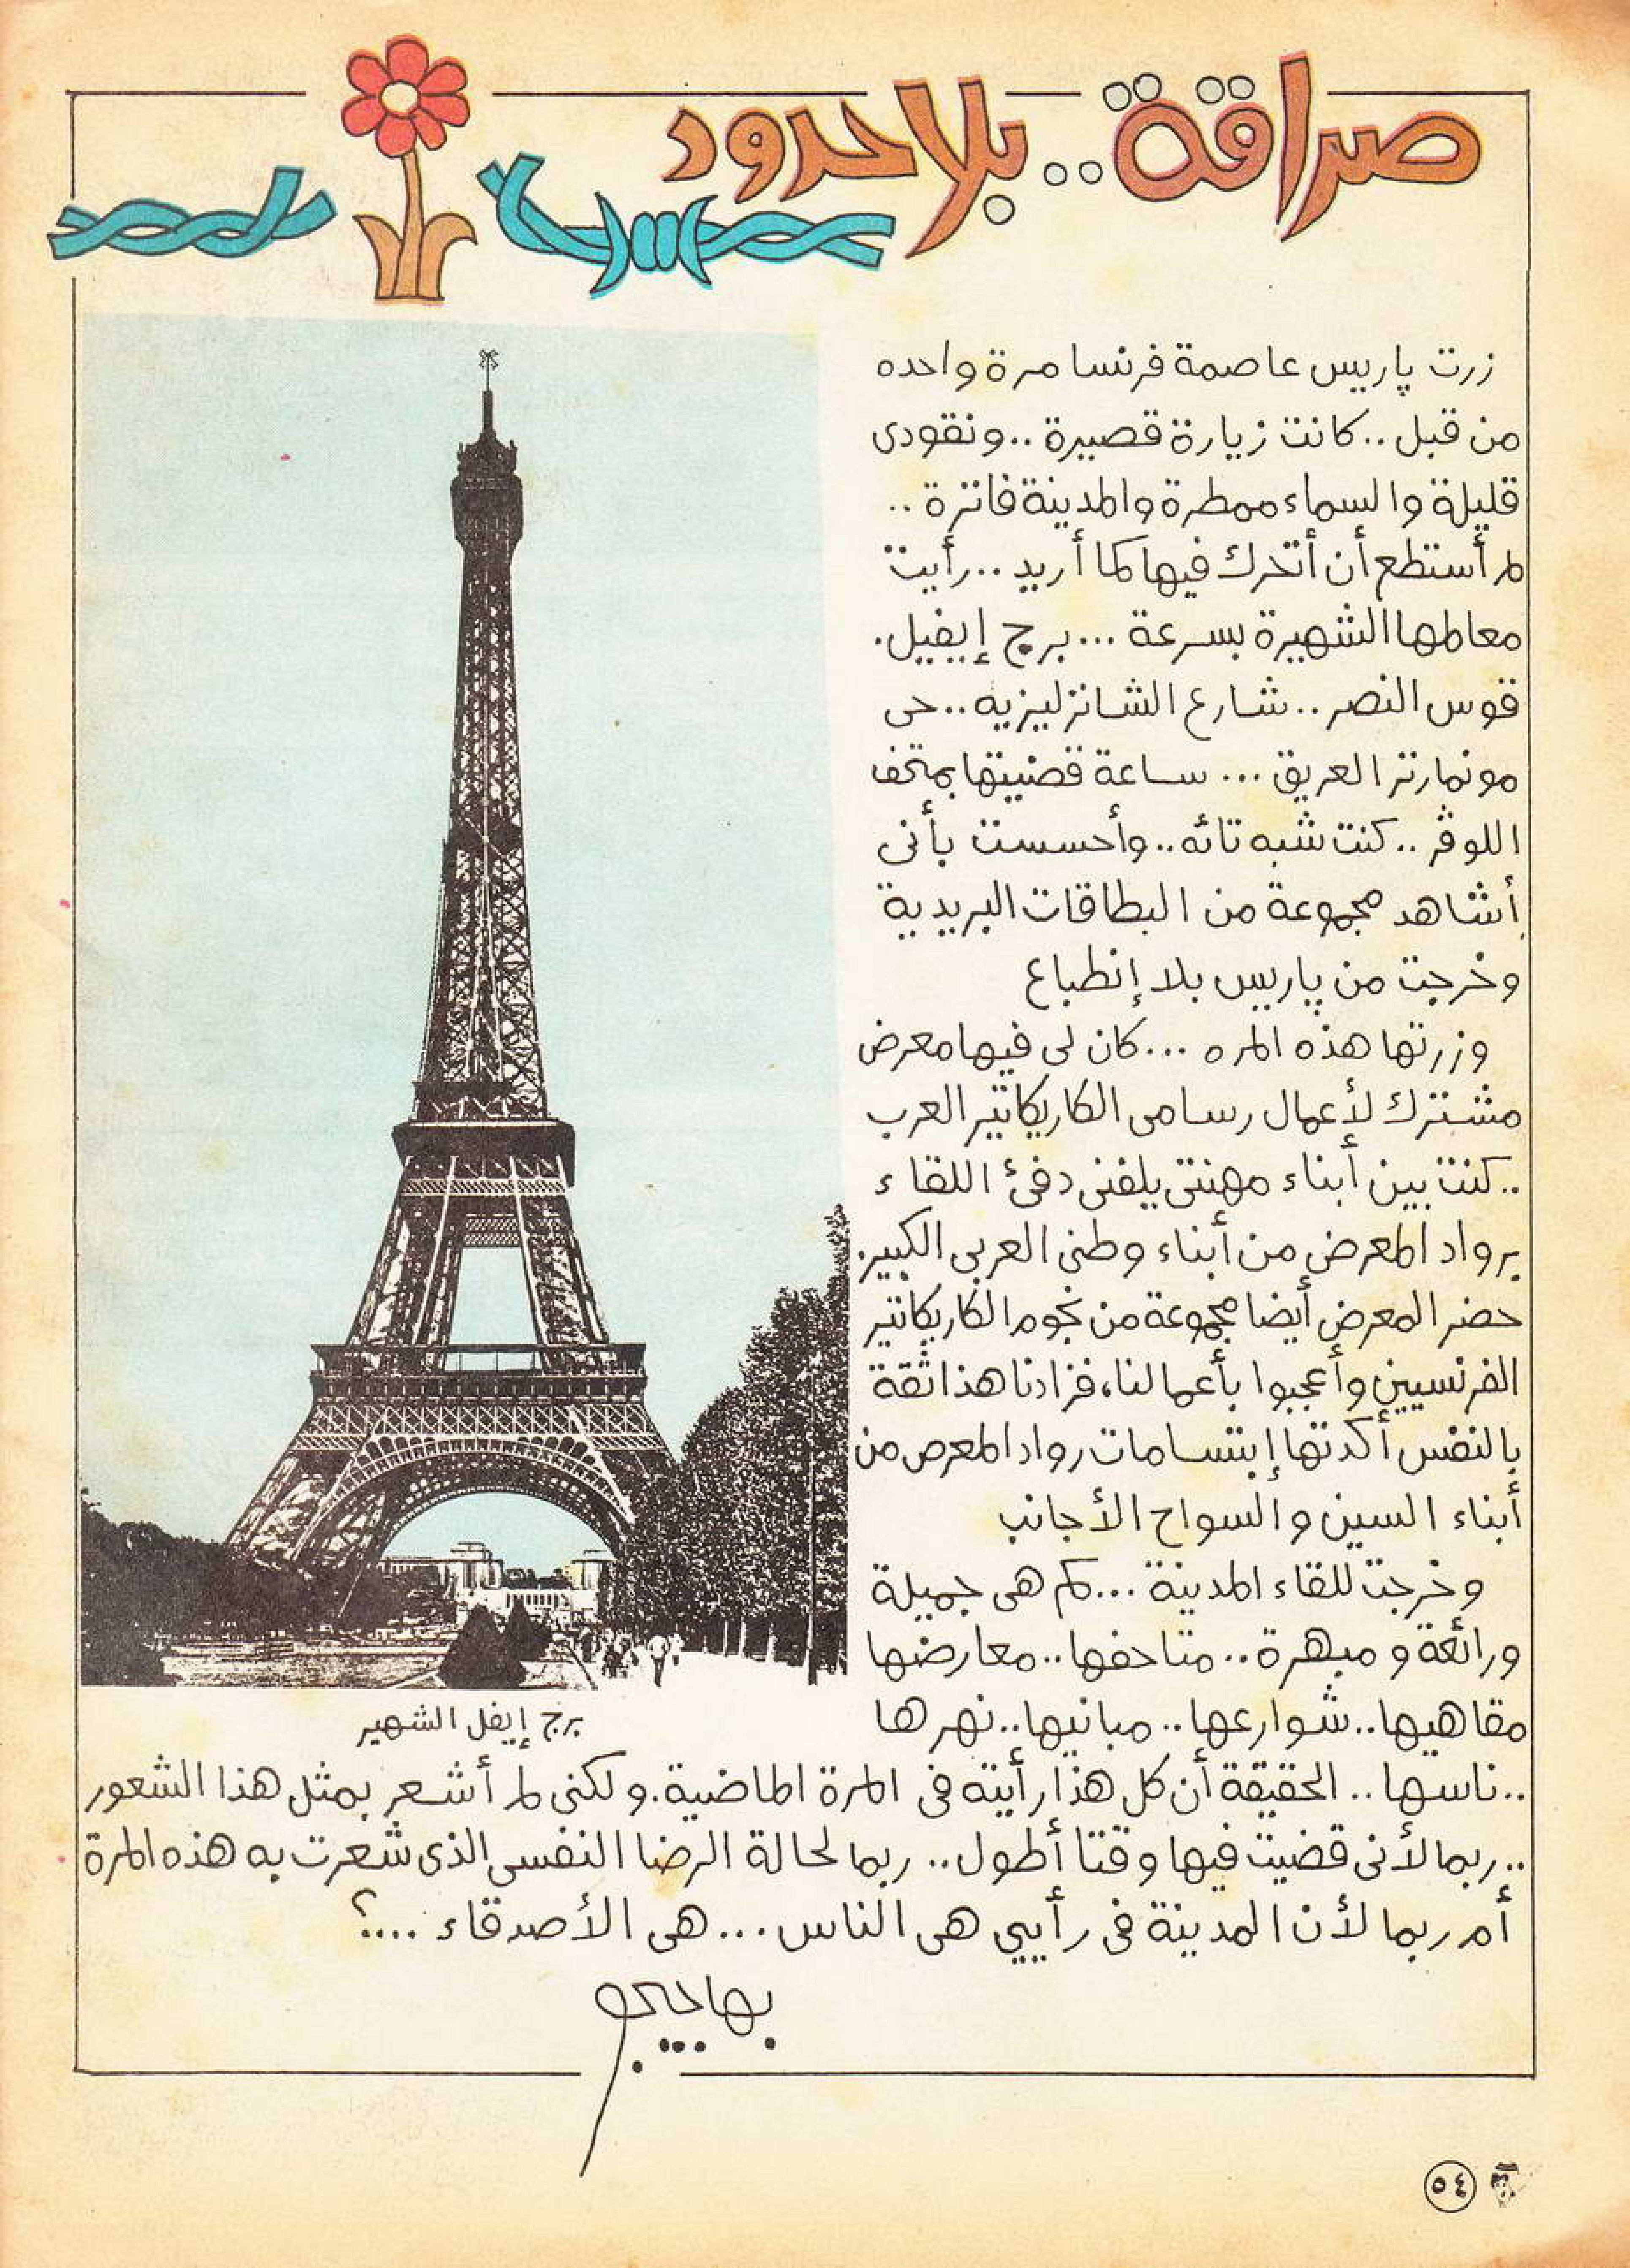 صداقة.. بلا حدود
زرت پاريس عاصمة فرنسا مرة واحده
من قبل .. كانت زيارة قصيرة .. ونقودى
قليلة والسماء ممطرة والمدينة فاترة ..
لم أستطع أن أتحرك فيها كما أريد .. رأيت
معالمها الشهيرة بسرعة ... برج إيفيل.
قوس النصر .. شارع الشانزليزيه .. حى
مونمارتر العريق ... ساعة قضيتها بمتحف
اللوڤر .. كنت شبه تائه .. وأحسست بأنى
أشاهد مجموعة من البطاقات البريدية
وخرجت من پاريس بلا إنطباع
وزرتها هذه المره ... كان لى فيها معرض
مشترك لأعمال رسامى الكاريكاتير العرب
.. كنت بين أبناء مهنتى يلفنى دفئ اللقاء
برواد المعرض من أبناء وطنى العربى الكبير.
حضر المعرض أيضا مجموعة من نجوم الكاريكاتير
الفرنسيين وأعجبوا بأعمالنا، فزادنا هذا ثقة
بالنفس أكدتها إبتسامات رواد المعرص من
أبناء السين والسواح الأجانب
وخرجت للقاء المدينة ... كم هى جميلة
ورائعة و مبهرة .. متاحفها .. معارضها
مقاهيها .. شوارعها .. مبانيها .. نهرها
برج إيفل الشهير
.. ناسها .. الحقيقة أن كل هذا رأيته فى المرة الماضية. ولكنى لم أشعر بمثل هذا الشعور
.. ربما لأنى قضيت فيها وقتا أطول .. ربما لحالة الرضا النفسى الذى شعرت به هذه المرة
أم ربما لأن المدينة فى رأيي هى الناس ... هى الأصدقاء ....؟
٥٤